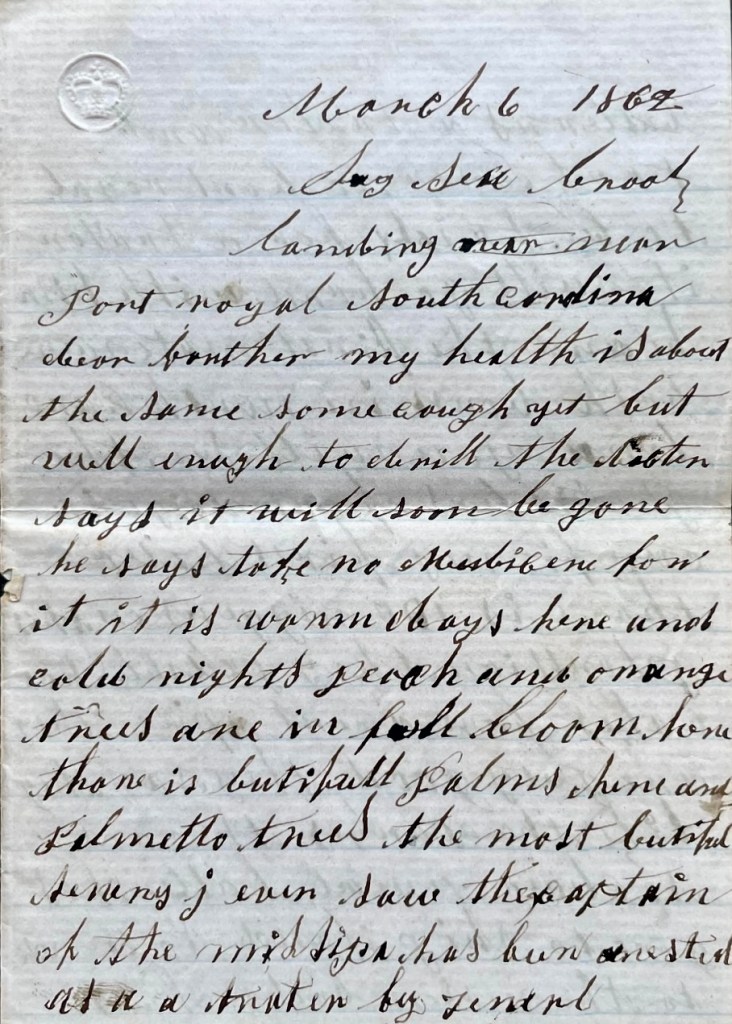 March 6 1862
Sug Sese Crool
landing near near
Port royal South carolina
dear brouther my health is about
the same some cough yet but
well enugh to drill the docter
says it will soon be gone
he says take no Medicene for
it it is warm days here and
cold nights peach and orange
trees are in full bloom here
thare is butifull palms here and
palmetto trees the most butiful
senery j ever saw the captain
of the missipa has bun arested
as a trater by Jenerl